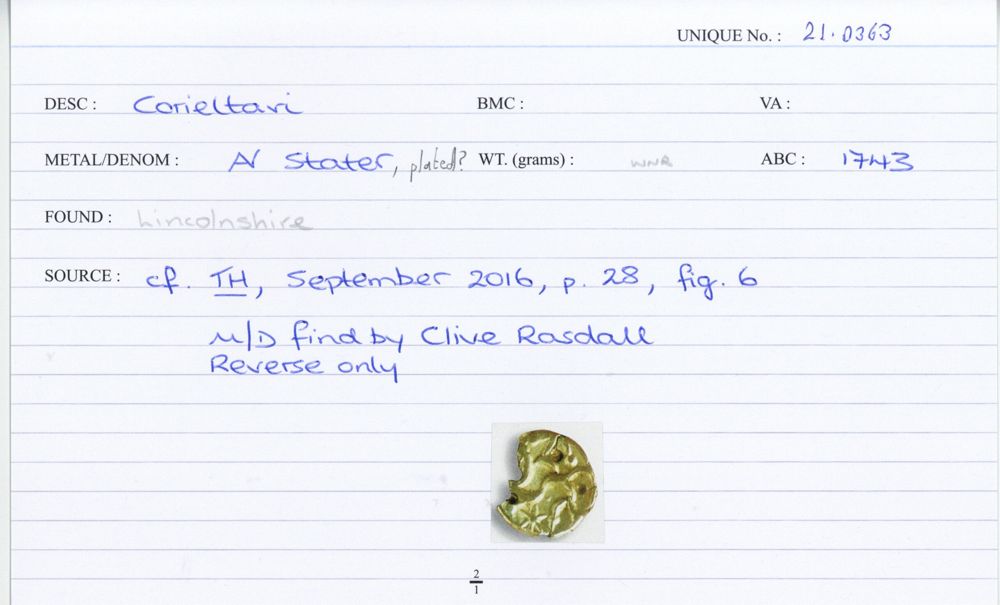 UNIQUE No. : 21.0363
DESC : Corieltavi BMC : VA :
METAL/DENOM : AV Stater, plated? WT. (grams) : WNR ABC : 1743
FOUND : Lincolnshire
SOURCE : cf. TH, September 2016, p. 28, fig. 6
M/D find by Clive Rasdall
Reverse only
2
1